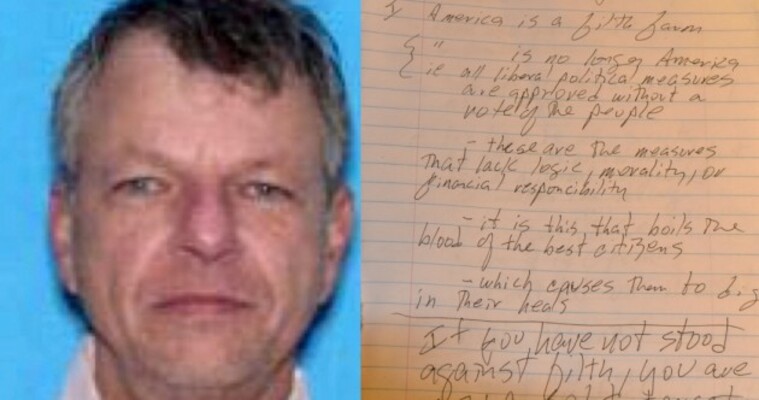 I America is a filth farm
{ " is no longer America
ie all liberal political measures
are approved without a
vote of the people
- these are the measures
that lack logic, morality, or
financial responcibility
- it is this that boils the
blood of the best citizens
- which causes them to dig
in their heals
If you have not stood
against filth, you are